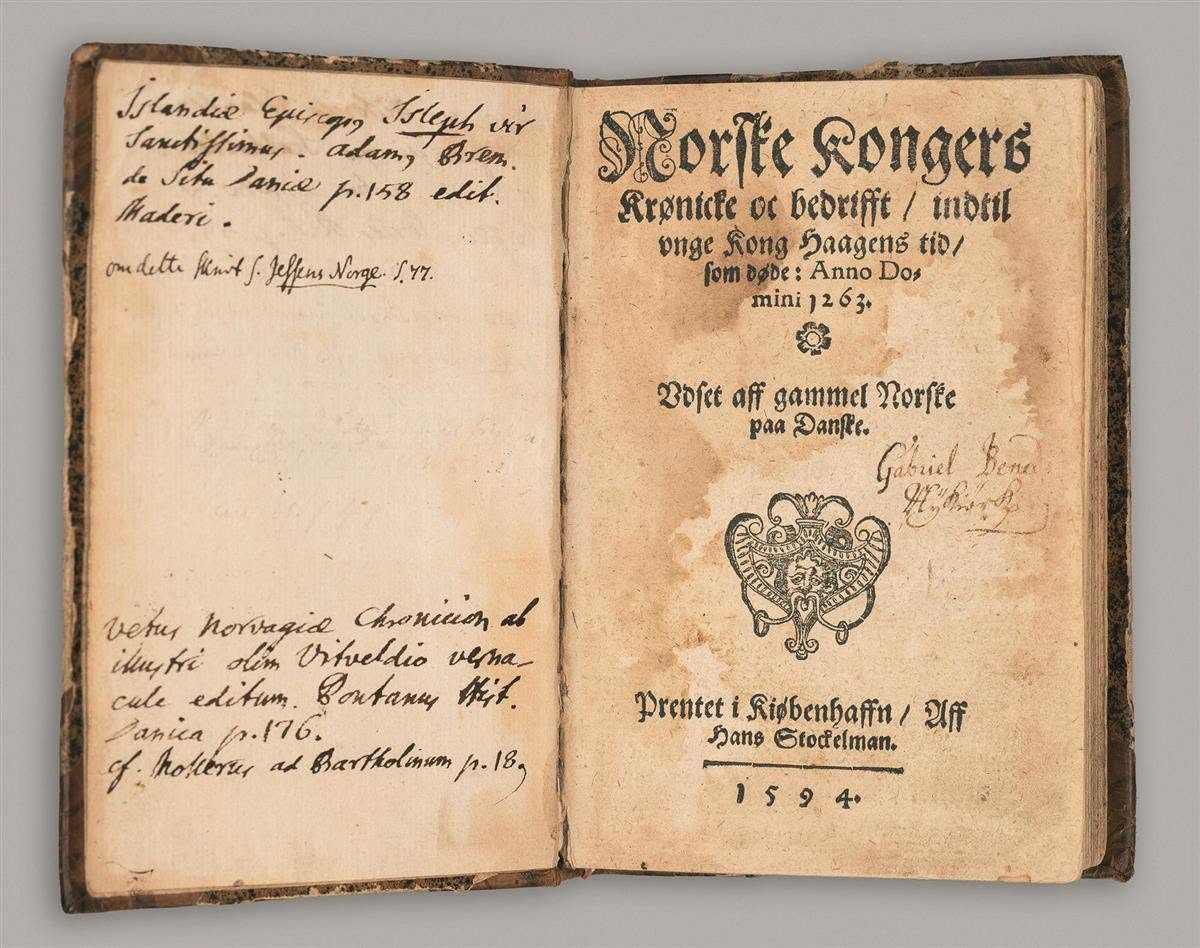 Islandiæ Episcopq Isleph vir
Sanctissimus. Adamq Brem.
de Situ Daniæ p.158 edit.
Maderi.
om dette Skrift s. Jessens Norge. S. 77.
vetus Norvagiæ Chronicion ab
illustri olim Vitveldio verna-
cule editum. Pontanus Hist.
Danica p.176.
cf. Mollerus ad Bartholinum p. 18.
Norske Kongers
Krønicke oc bedrifft / indtil
vnge Kong Haagens tid/
som døde: Anno Do-
mini 1263.
Vdset aff gammel Norske
paa Danske.
Gabriel
Prentet i Kiøbenhaffn / Aff
Hans Stockelman.
1594.